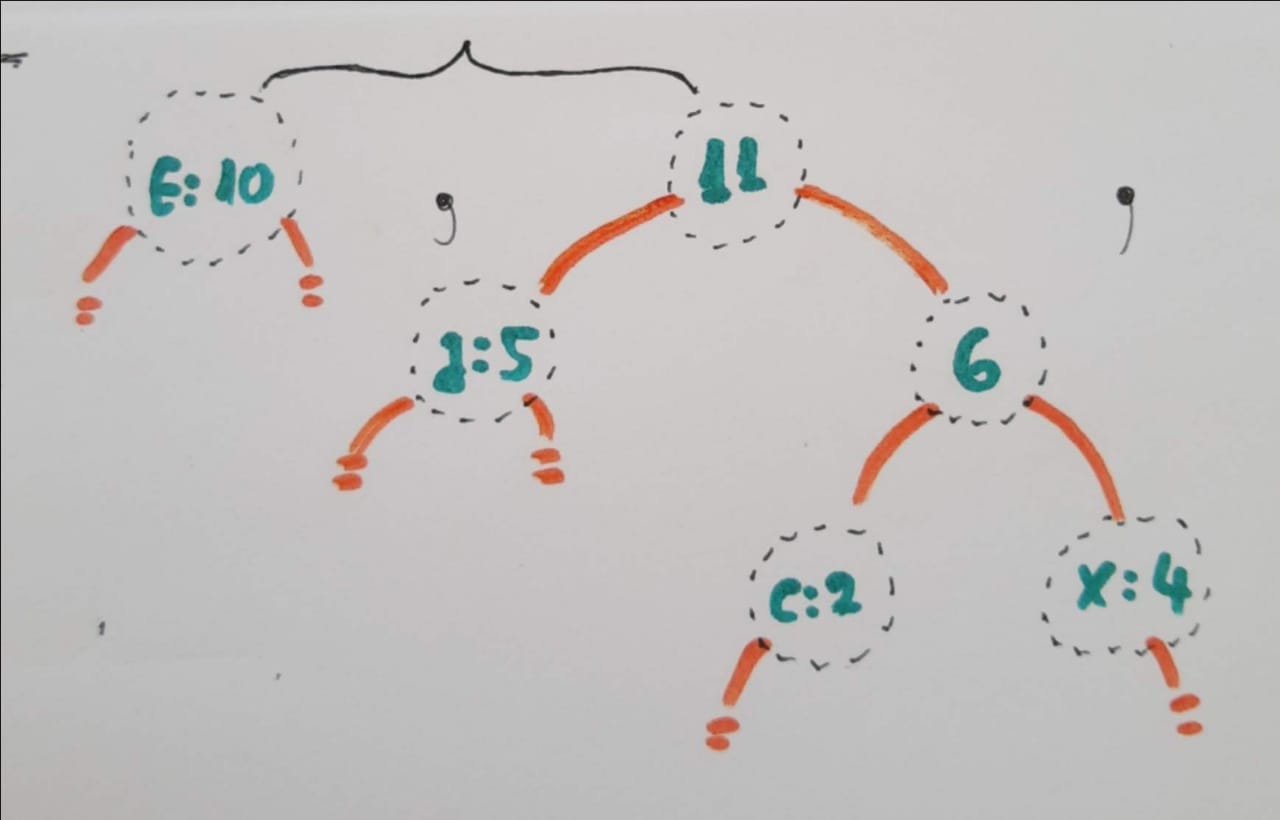 E:10 , 11 ,
J:5 6
C:2 X:4